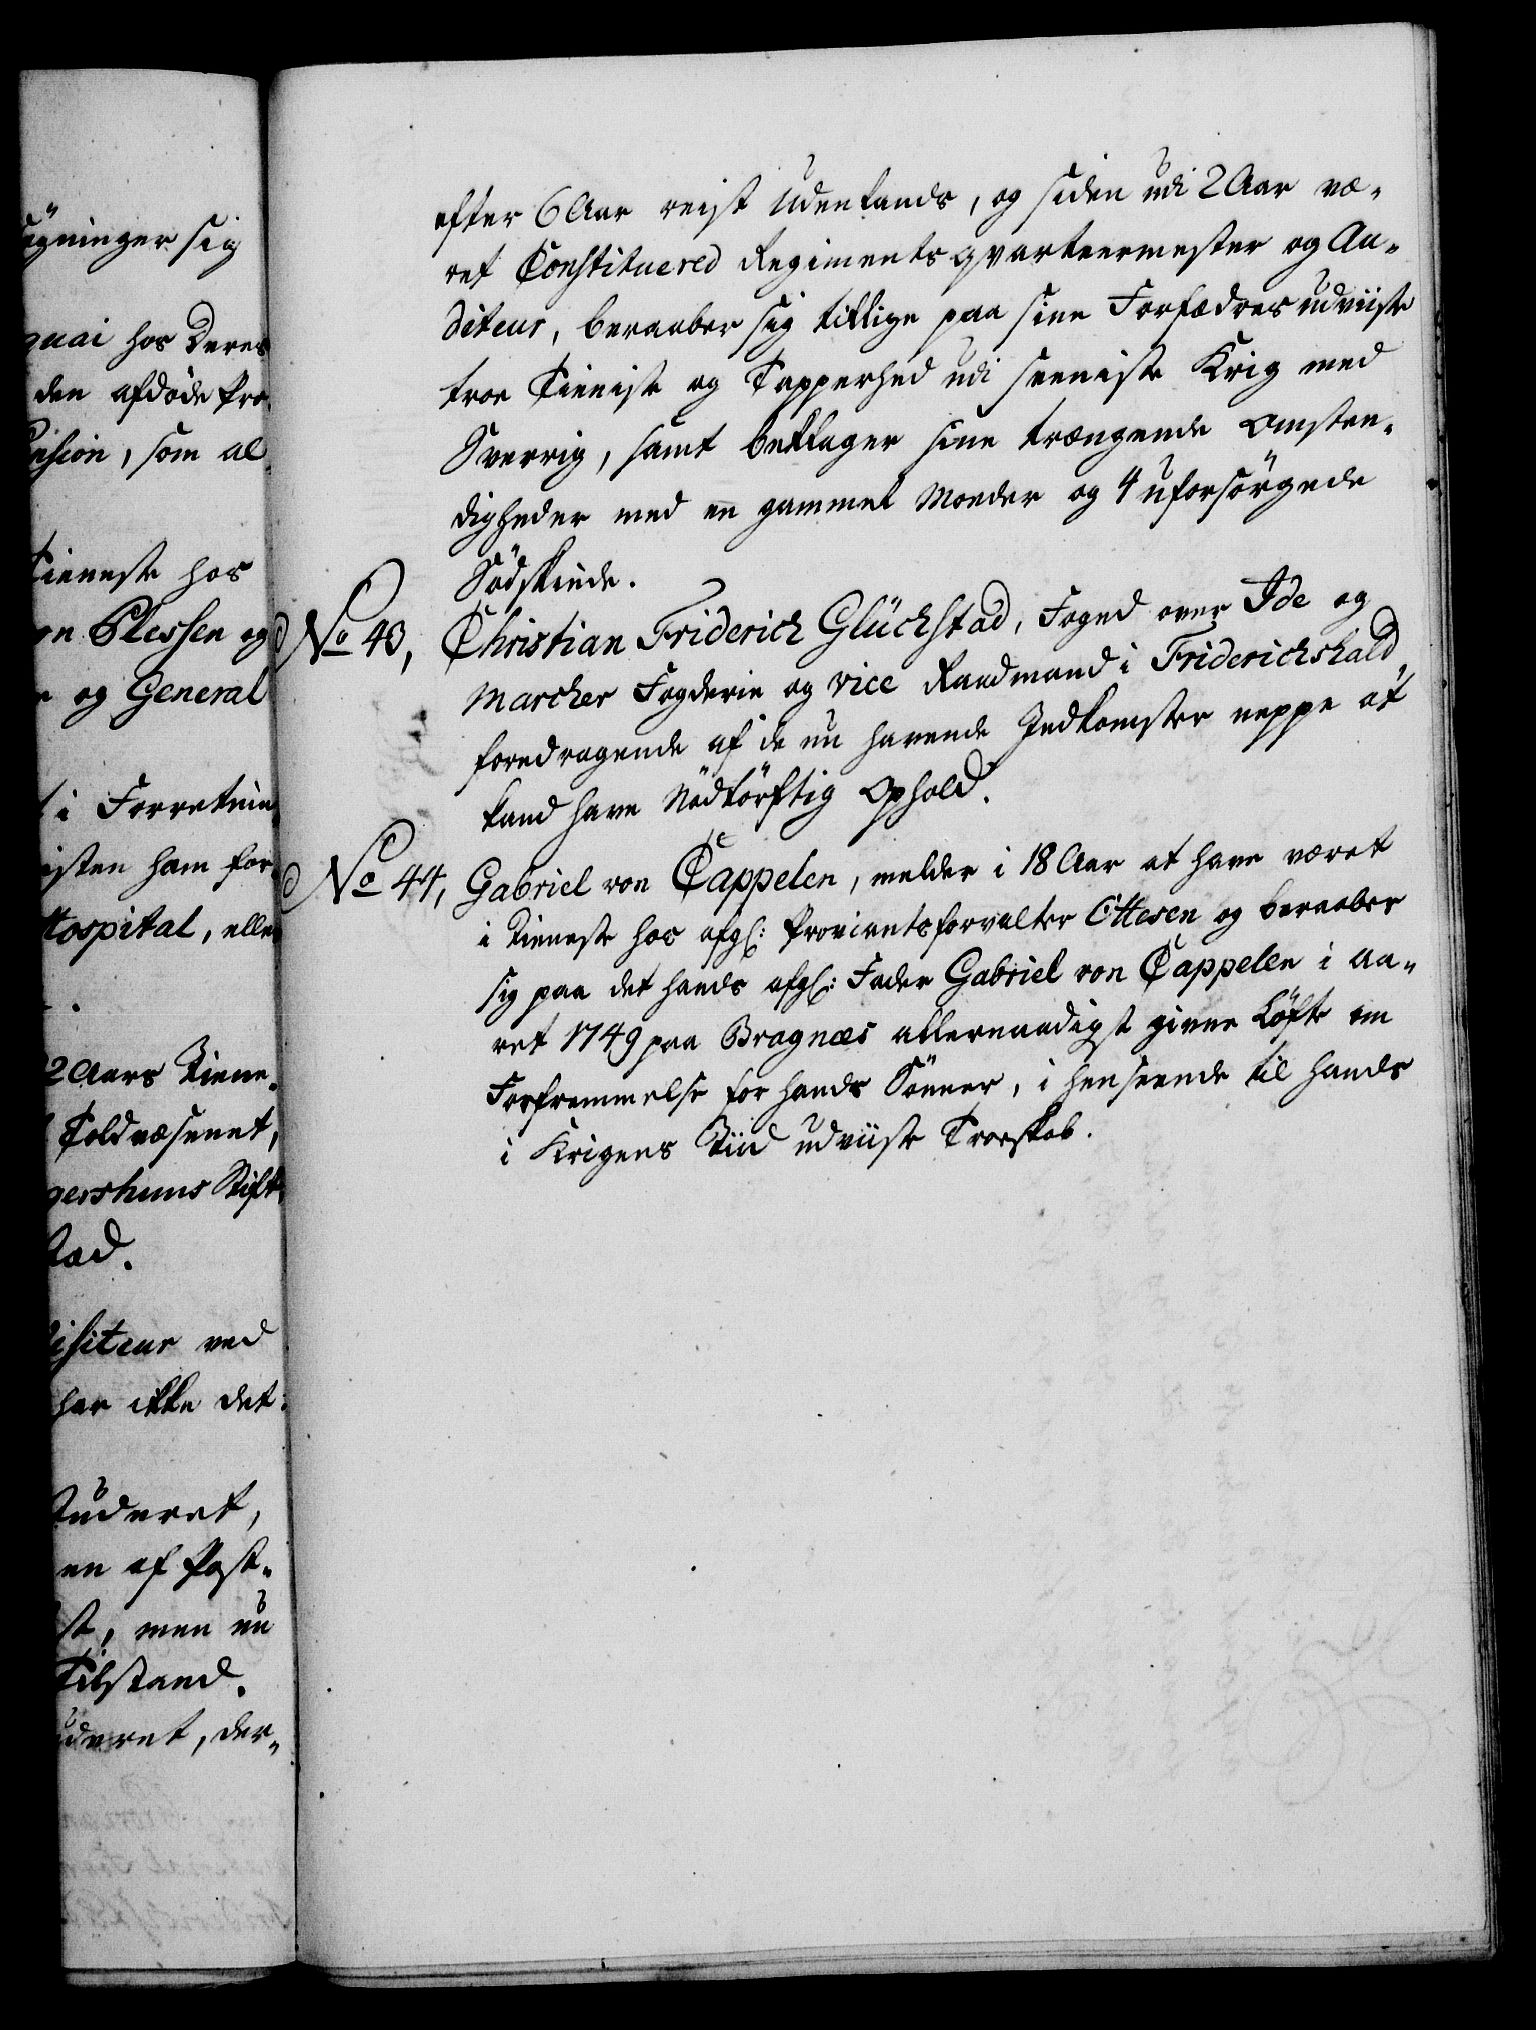 øgninger sig
quai hos Deres
den afdøde Pro-
ension, som al
Tieneste hos
on Plessen og
e og General
i Forretnin
isten ham for
Hospital, eller
2 Aars Tiene-
Toldvæsenet,
gershuus Stift
stad.
isiteur ved
har ikke det
studeret,
en af Post-
st, men nu
Tilstand.
uderet, der-
efter 6 Aar reist udenlands, og siden udi 2 Aar væ-
ret Constituered Regimentsqvarteermester og Au-
diteur, beraaber sig tillige paa sine Forfædres udviiste
troe Tieniste og Tapperhed udi seeniste Krig med
Sverrig, samt beklager sine trængende Omsten-
digheder med en gammel Moeder og 4 uforsørgede
Sødskende.
No 43, Christian Friderich Glückstad, Foged over Ide og
Marcker Fogderie og vice Raadmand i Friderichshald,
foredragende af de nu havende Indkomster neppe at
kand have Nødtørftig Ophold.
No 44, Gabriel von Cappelen, melder i 18 Aar at have været
i Tieneste hos afgl: Proviantsforvalter Ottesen og beraaber
sig paa det hands afgl: Fader Gabriel von Cappelen i Aa-
ret 1749 paa Bragnæs allernaadigst givne Løfte om
Forfremmelse for hands Sønner, i henseende til hands
i Krigens Tiid udviiste Troeskab.